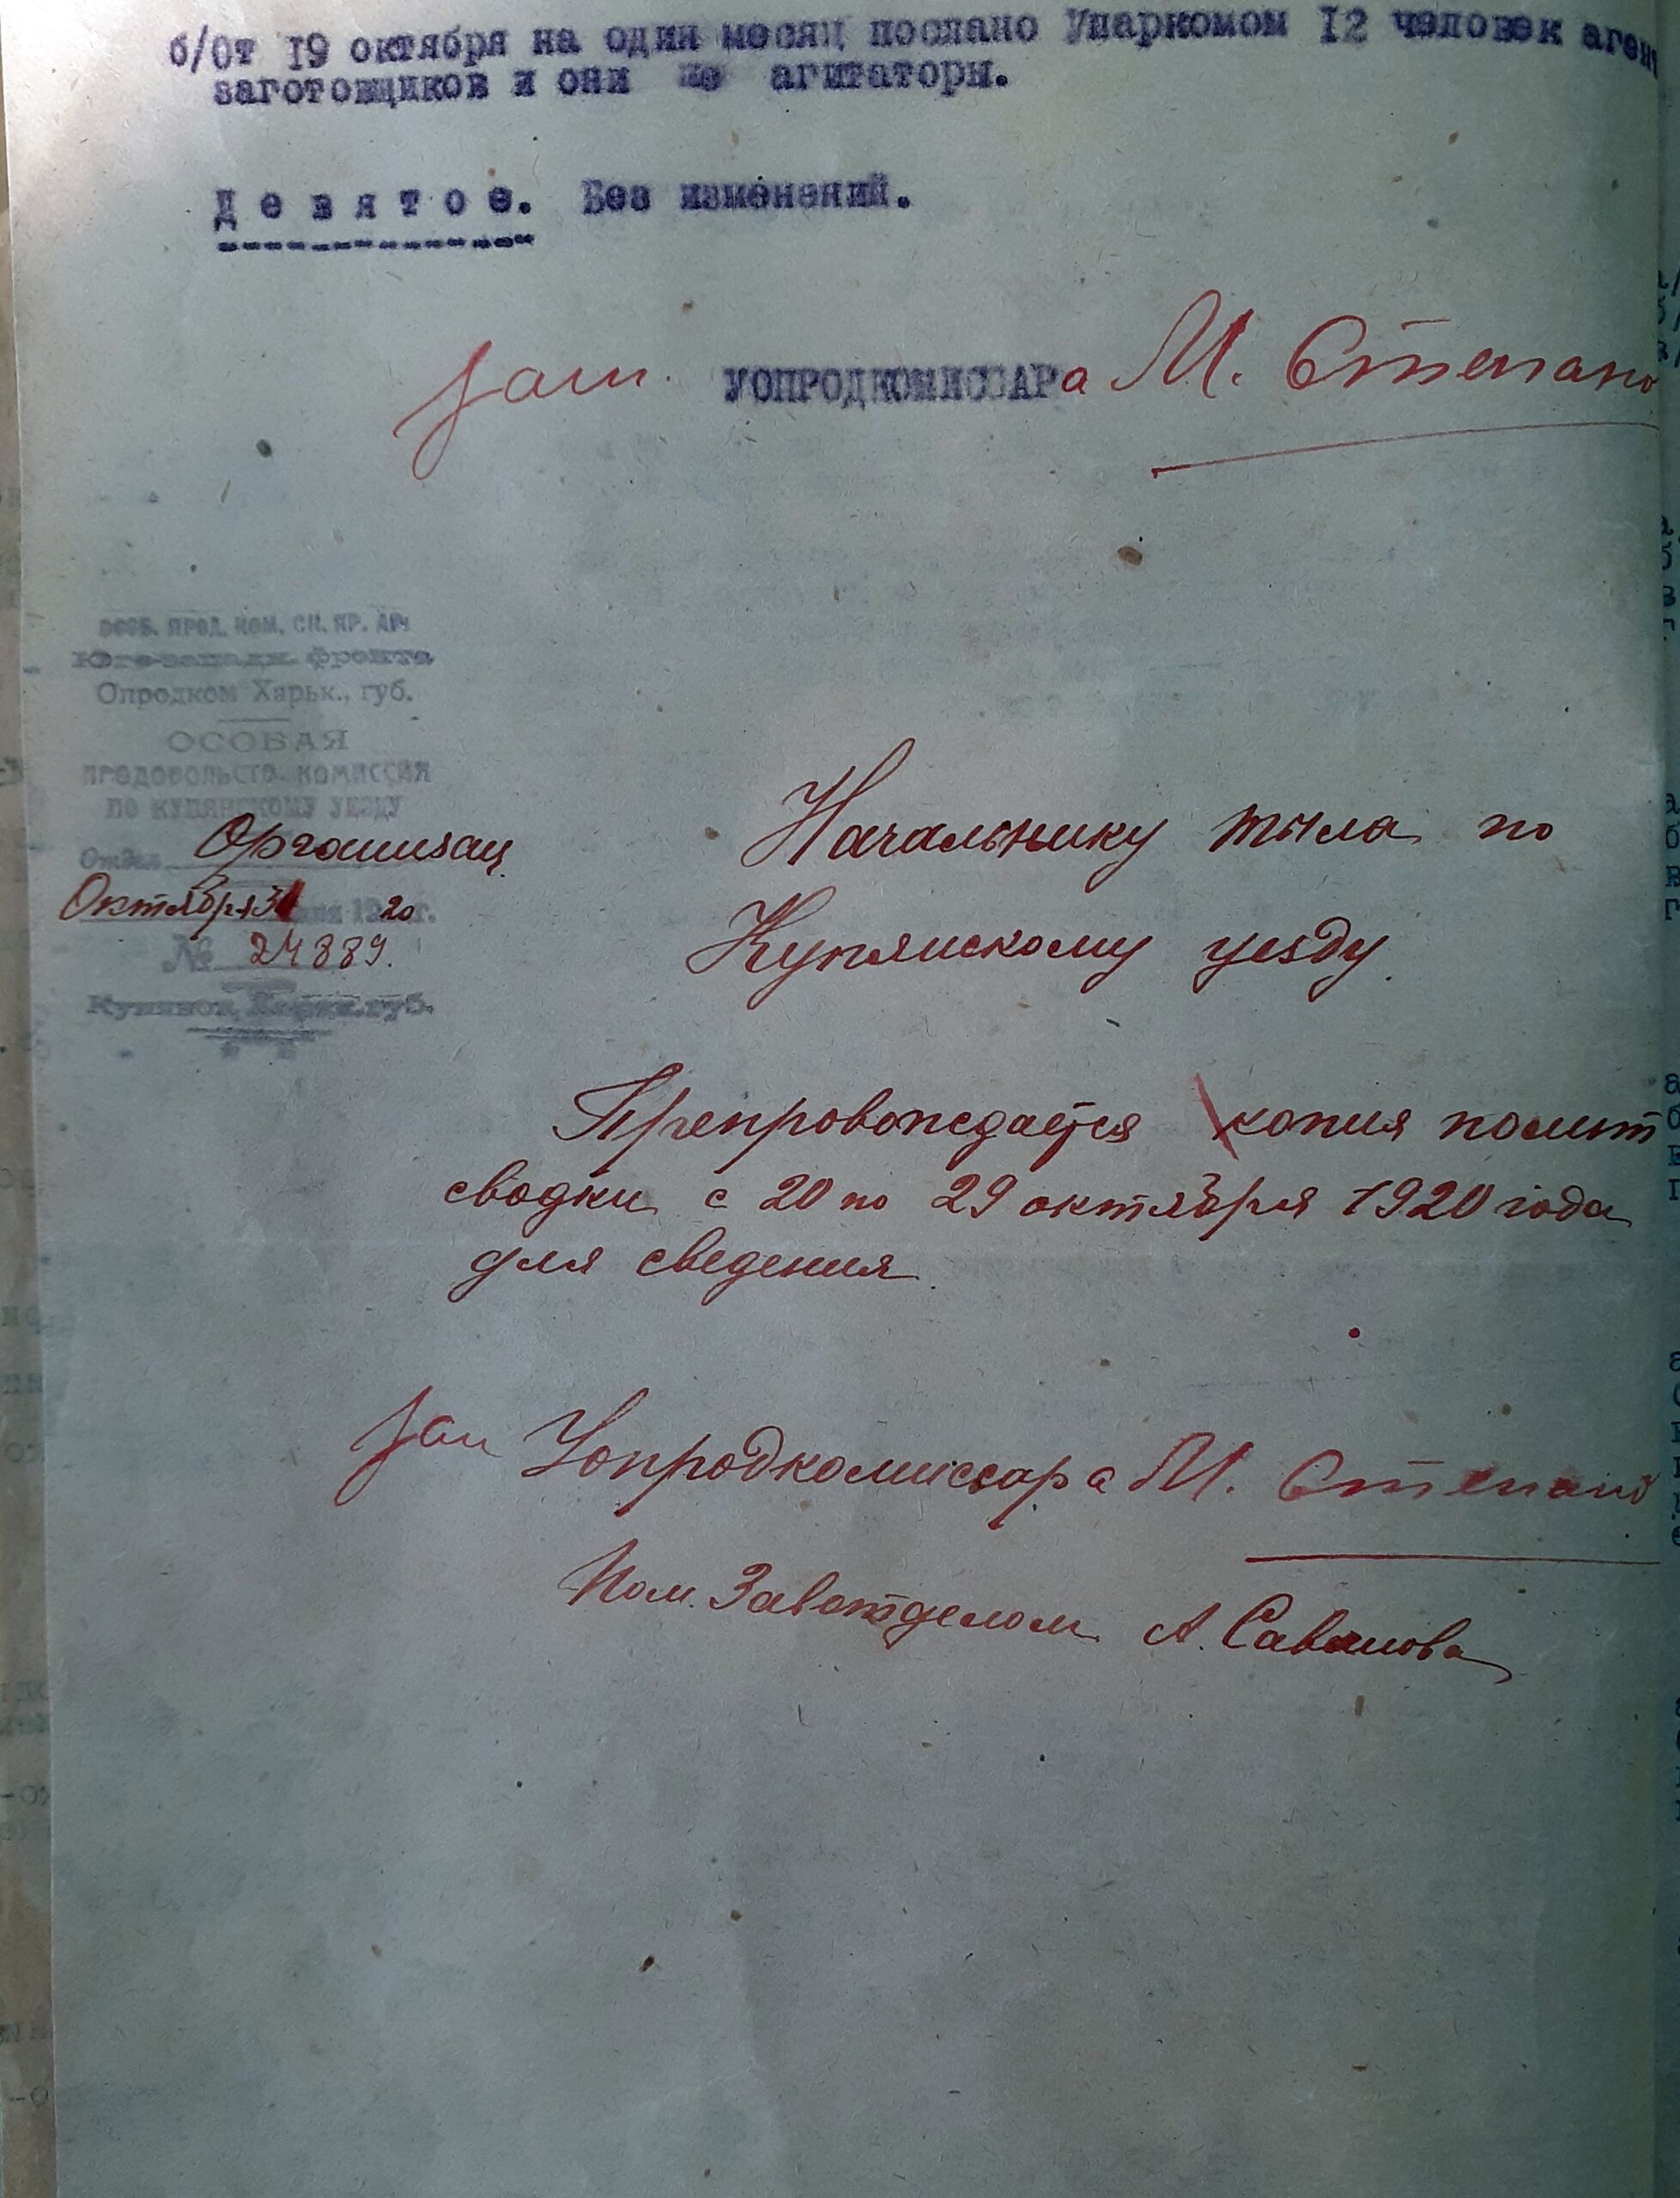 б/От 19 октября на один месяц послано Упаркомом 12 человек аген
заготовщиков и они же агитаторы.
Девятое. Без изменений.
Зам. УОПРОДКОМИССАРа М. Степано
ОСОБ. ПРОД. КОМ. СН. ЯР. АР.
Юго-западн. фронта
Опродком Харьк., губ.
ОСОБАЯ
ПРОДОВОЛЬСТВ. КОМИССИЯ
ПО КУПЯНСКОМУ УЕЗДУ
Отдел Организац.
Октября 31 дня 1920 г.
№ 24889.
Купянск, Харьк. губ.
Начальнику тыла по
Купянскому уезду.
Препровождается копия полит
сводки с 20 по 29 октября 1920 года
для сведения.
Зам Уопродкомиссара М. Степано
Пом. Завотделом А. Саванова